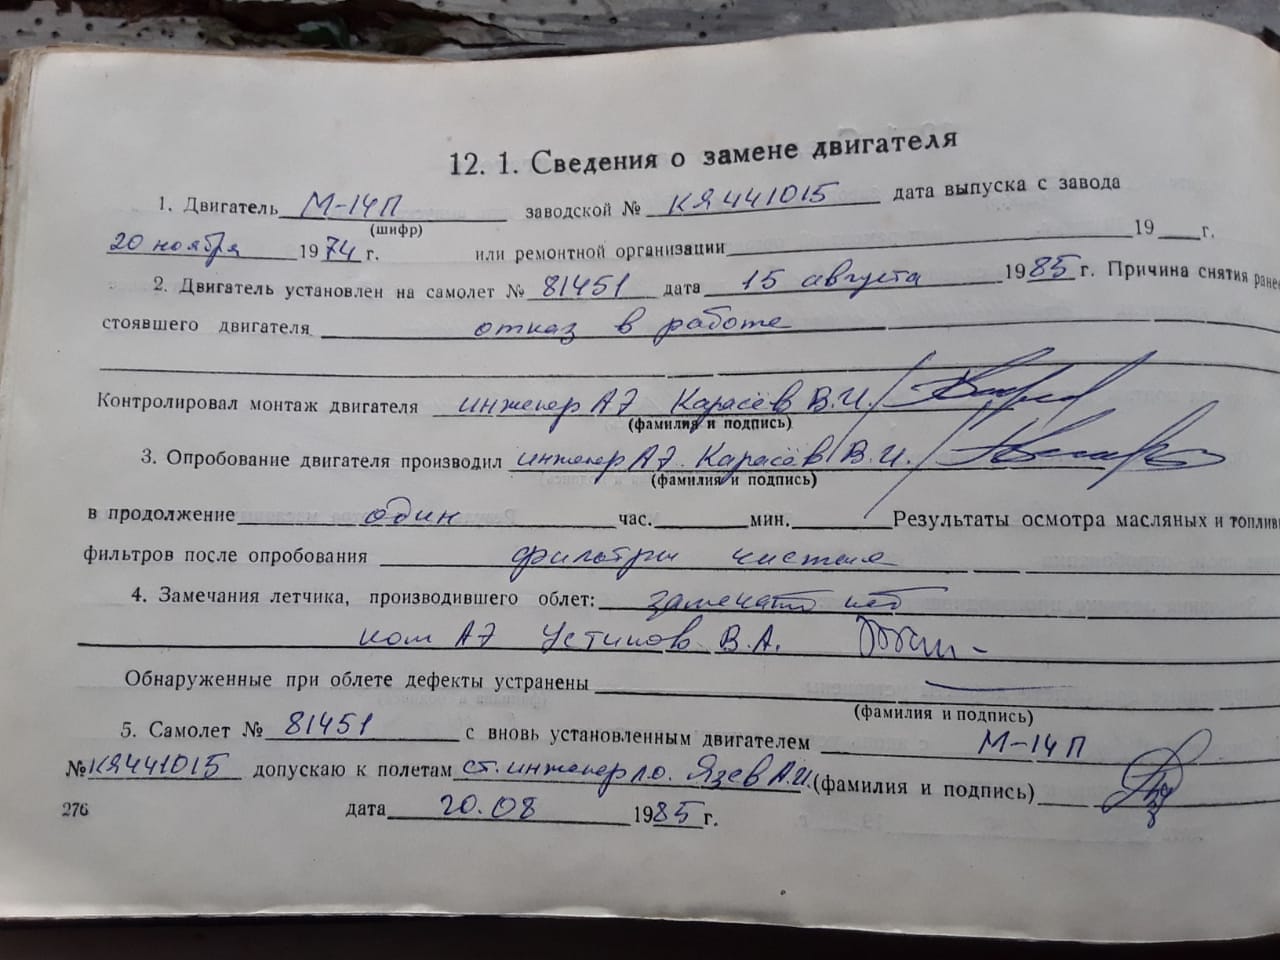 12. 1. Сведения о замене двигателя
1. Двигатель М-14П заводской № КЯ441015 дата выпуска с завода
(шифр)
20 ноября 1974 г. или ремонтной организации 19 г.
2. Двигатель установлен на самолет № 81451 дата 15 августа 1985 г. Причина снятия ранее
стоявшего двигателя отказ в работе
Контролировал монтаж двигателя инженер АЭ Карасёв В.И.
(фамилия и подпись)
3. Опробование двигателя производил инженер АЭ Карасёв В.И.
(фамилия и подпись)
в продолжение один час. мин. Результаты осмотра масляных и топлив
фильтров после опробования фильтры чистые
4. Замечания летчика, производившего облет: замечаний нет
ком АЭ Устинов В.А.
Обнаруженные при облете дефекты устранены
(фамилия и подпись)
5. Самолет № 81451 с вновь установленным двигателем М-14П
№ КЯ441015 допускаю к полетам ст. инженер л.о. Язев А.И. (фамилия и подпись)
276 дата 20.08 1985 г.